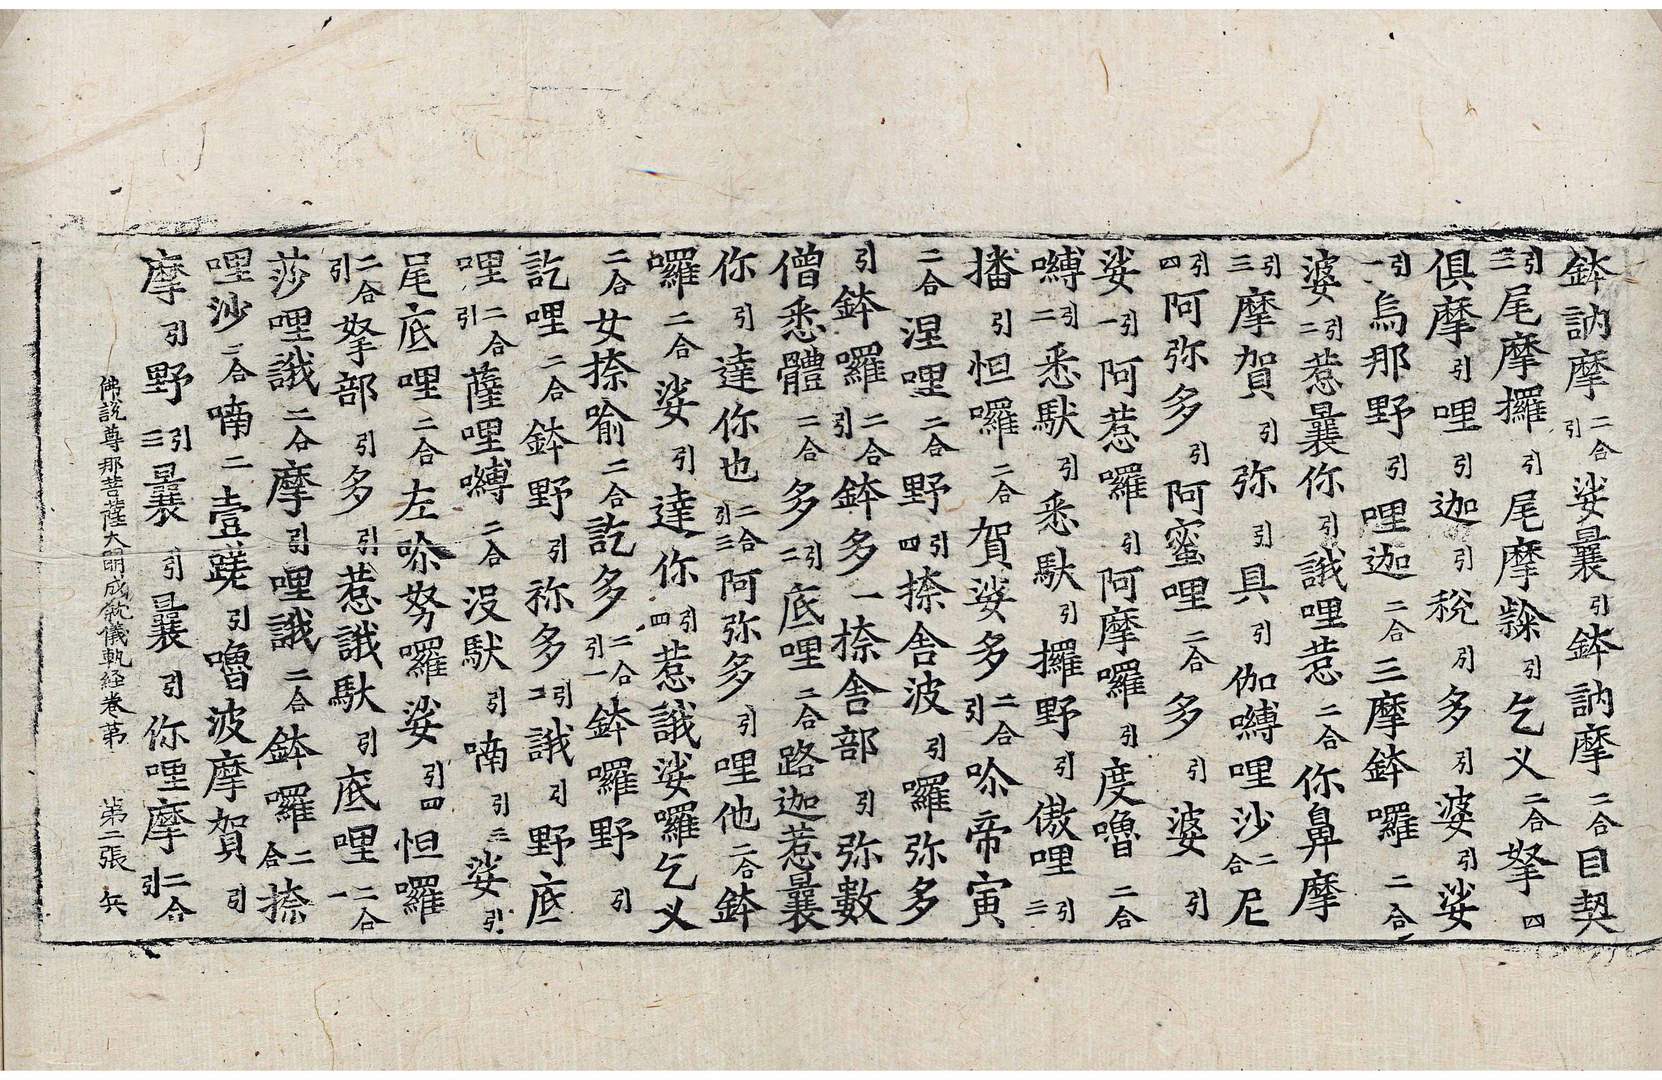 鉢訥摩二合引娑曩引鉢訥摩二合目契
引三尾摩攞引尾摩黲引乞义二合拏四
俱摩引哩引迦引税引多引婆引娑
引一烏那野引哩迦二合三摩鉢囉二合
婆引二惹曩你引誐哩惹二合你鼻摩
引三摩賀引弥引具引伽嚩哩沙二合尼
引四阿弥多引阿蜜哩二合多引婆引
娑引一阿惹囉引阿摩囉引度嚕二合
嚩引二悉馱引悉馱引攞野引傲哩引三
播引怛囉二合賀娑多二合引唥帝寅
二合涅哩二合野引四捺舍波引囉弥多
引鉢囉二合引鉢多一捺舍部引弥數
僧悉體二合多引二底哩二合路迦惹曩
你引達你也二合引三阿弥多引哩他二合鉢
囉二合娑引達你引四惹誐娑囉乞义
二合女捺喻二合訖多二合引一鉢囉野引
訖哩二合鉢野引祢多引二誐引野底
哩二合引薩哩嚩二合沒馱引喃引三娑引
尾底哩二合左唥努囉娑引四怛囉
二合引拏部引多引惹誐馱引底哩二合一
莎哩誐二合摩引哩誐二合鉢囉二合捺
哩沙二合喃二壹蹉引嚕波摩賀引
摩引野引三曩引曩引你哩摩二合引
佛説尊那菩薩大明成就儀軌経卷第 第二張 兵